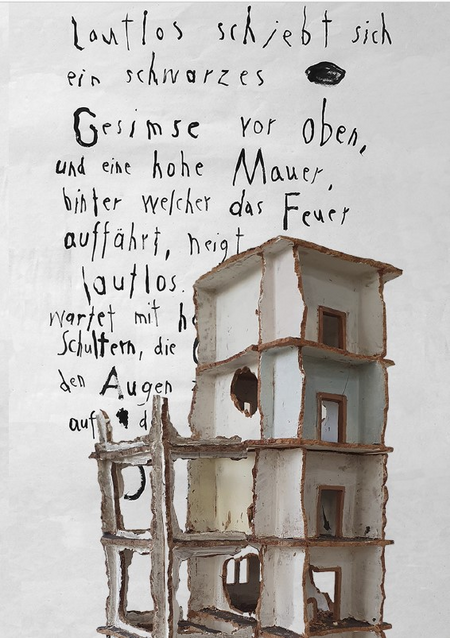 Lautlos schiebt sich
ein schwarzes
Gesimse vor oben,
und eine hohe Mauer,
hinter welcher das Feuer
auffährt, neigt
lautlos.
wartet mit
Schultern, die
den Augen
auf